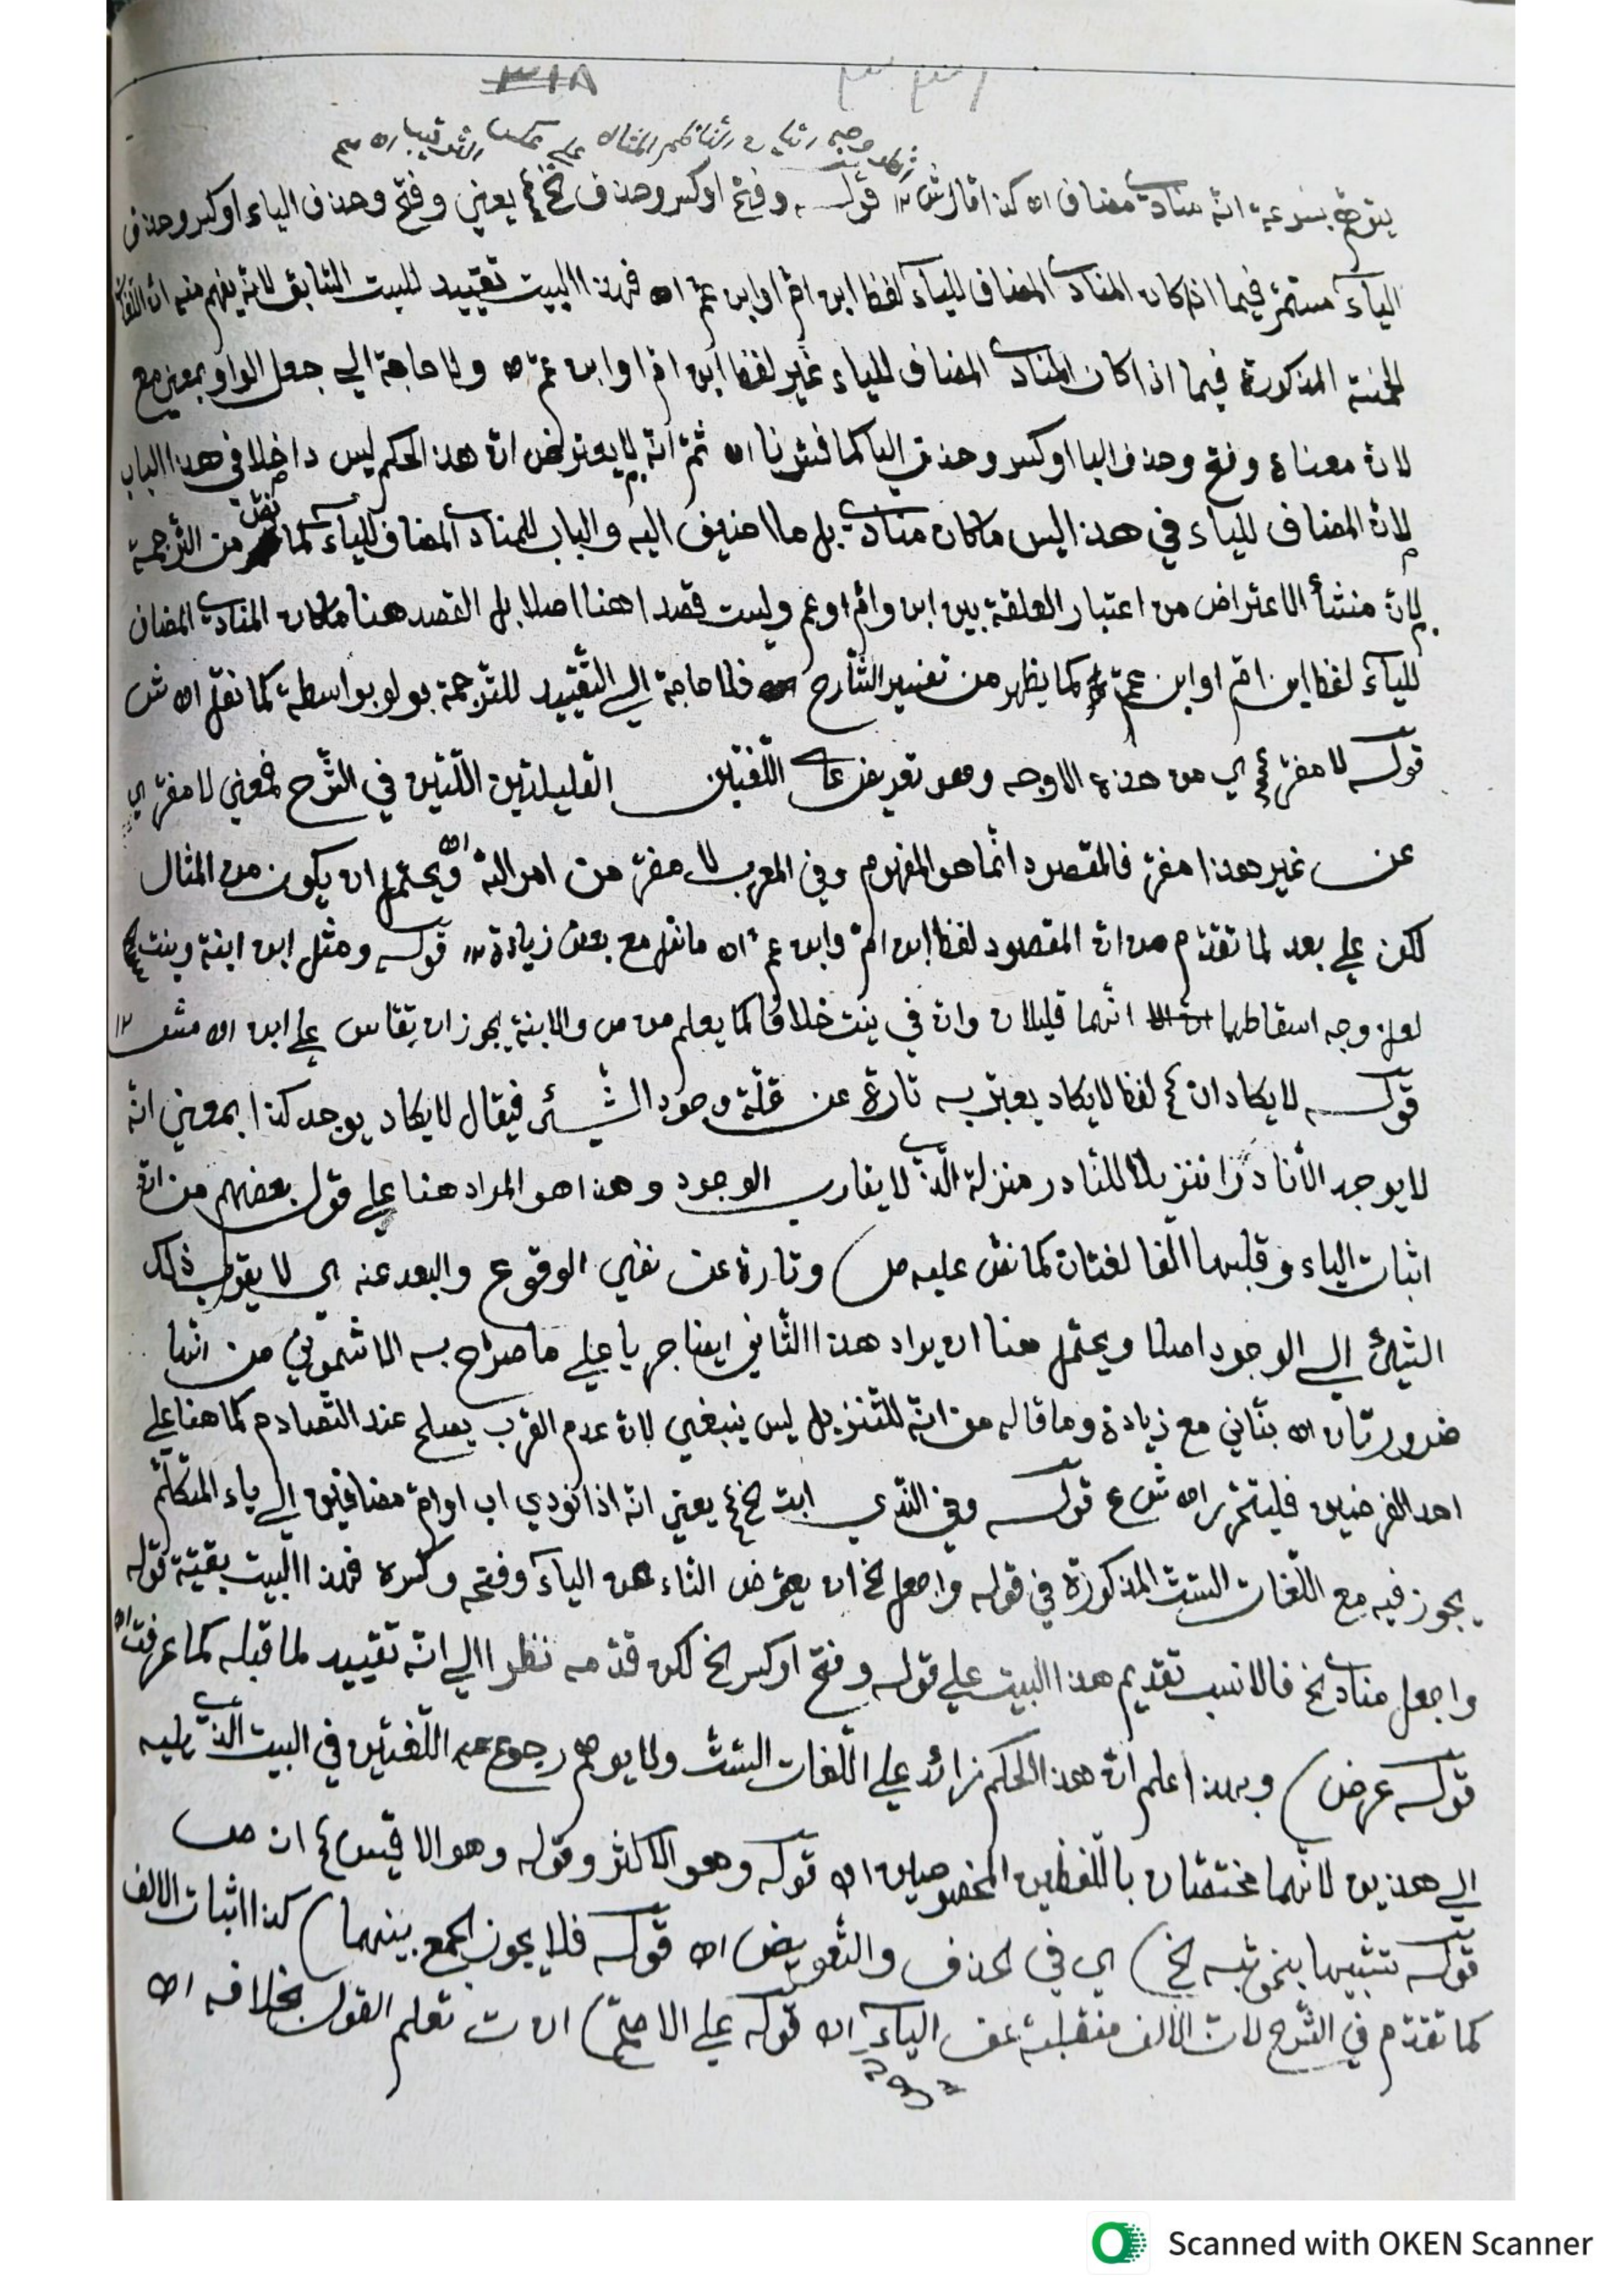 ٣١٨ ٣٣١
وجه على عكس الترتيب اه
يتوهم بسرعة انه منادى مضاف اه كذا قولـه وفتح او كسر وحذف الخ يعني وفتح وحذف الياء او كسر وحذف
الياء مستمر فيما اذا كان المنادى المضاف للياء لفظ ابن ام او ابن عم اه فهذا البيت تقييد للبيت السابق لانه يفهم منه ان اللغات
الخمسة المذكورة فيما اذا كان المنادى المضاف للياء غير لفظ ابن ام او ابن عم اه ولا حاجة الى جعل الواو بمعنى مع
لان معناه وفتح وحذف اليا او كسر وحذف اليا كما فسرنا اه ثم انه لا يعترض ان هذا الحكم ليس داخلا في هذا الباب
لان المضاف للياء في هذا ليس ما كان منادى بل ما اضيف اليه والباب للمنادى المضاف للياء كما نقل من الترجمة
لان منشأ الاعتراض من اعتبار العلقة بين ابن وام او عم وليست قصدا هنا اصلا بل القصد هنا ما كان المنادى المضاف
للياء لفظ ابن ام او ابن عم كما يظهر من تفسير الشارح فلا حاجة الى التقييد للترجمة بولو بواسطة كما نقل اه ش
قولـه لا مفر اي من هذه الاوجه وهو تعريض على اللغتين القليلتين اللتين في الشرح فمعنى لا مفر اي
عن غير هذا مفر فالمقصود انما هو المفهوم وفي المعرب لا مفر من امر الله اه ويحتمل ان يكون من المثال
لكن على بعد لما تقدم من ان المقصود لفظ ابن ام وابن عم اه ما نقل مع بعض زيادة ١٢ قولـه ومثل ابن ابنة وبنت
لعل وجه اسقاطهما انهما قليلان وان في بنت خلافا كما يعلم من ص والابنة يجوز ان يقاس على ابن اه ١٢
قولـه لا يكاد ان لفظ لا يكاد يعبر به تارة عن قلة وجود الشيء فيقال لا يكاد يوجد كذا بمعنى انه
لا يوجد الا نادرا تنزيلا للنادر منزلة الذي لا يقارب الوجود وهذا هو المراد هنا على قول بعضهم من ان
اثبات الياء وقلبها الفا لغتان كما نص عليه ص) وتارة عن نفي الوقوع والبعد عنه اي لا يقرب ذلك
الشيء الى الوجود اصلا ويحتمل هنا ان يراد هذا الثاني ايضا جريا على ما صرح به الاشموني من انها
ضرورتان اه بناني مع زيادة وما قاله من انه للتنزيل ليس ينبغي لان عدم القرب يصلح عند التصادم كما هنا على
احد الفرضين فليتحرر اه ش ع قولـه وفي الندى ابت الخ يعني انه اذا نودي اب او ام مضافين الى ياء المتكلم
يجوز فيه مع اللغات الست المذكورة في قوله واجعل الخ ان يعوض التاء عن الياء وفتحه وكسره فهذا البيت بقية قوله
واجعل منادى الخ فالانسب تقديم هذا البيت على قوله وفتح او كسر الخ لكن قدمه نظرا الى انه تقييد لما قبله كما عرفت اه
قولـه عرض) وبهذا اعلم ان هذا الحكم زائد على اللغات الست ولا يوهم رجوع اللغتين في البيت الذي يليه
الى هذين لانهما مختصتان باللفظين المخصوصين اه قوله وهو الاكثر وقوله وهو الاقيس ان ص
قولـه تشبيها بنحو ثبه الخ) اي في الحذف والتعويض اه قولـه فلا يجوز الجمع بينهما) كذا اثبات الالف
كما تقدم في الشرح لان الالف منقلبة عن الياء اه قوله على الاصح) ان ت تعلم القول بخلافه اه
Scanned with OKEN Scanner